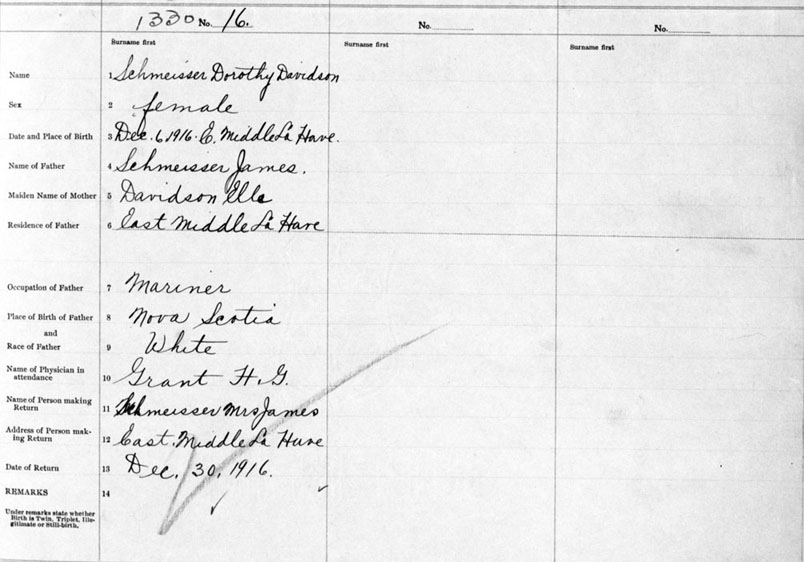 1330 No. 16. No. No.
Surname first Surname first Surname first
Name 1 Schmeisser Dorothy Davidson
Sex 2 female
Date and Place of Birth 3 Dec. 6, 1916. E. Middle La Have.
Name of Father 4 Schmeisser James.
Maiden Name of Mother 5 Davidson Ella
Residence of Father 6 East Middle La Have
Occupation of Father 7 Mariner
Place of Birth of Father 8 Nova Scotia
and
Race of Father 9 White
Name of Physician in
attendance 10 Grant H. G.
Name of Person making
Return 11 Schmeisser Mrs James
Address of Person mak-
ing Return 12 East, Middle La Have
Date of Return 13 Dec. 30, 1916.
REMARKS 14
Under remarks state whether
Birth is Twin, Triplet, Ille-
gitimate or Still-birth.